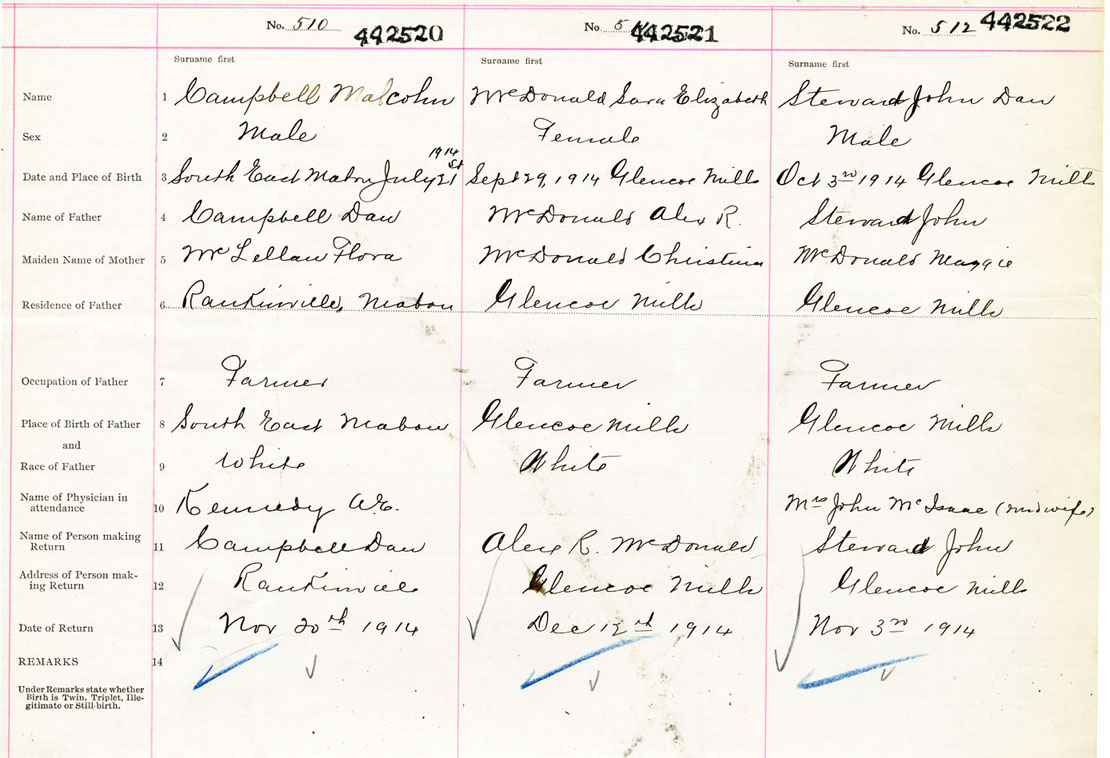 No. 510 442520 No 5 442521 No. 512 442522
Surname first Surname first Surname first
Name 1 Campbell Malcolm McDonald Sara Elizabeth Steward John Dan
Sex 2 Male Female Male
1914
Date and Place of Birth 3 South East Mabou July 21st Sept 29, 1914 Glencoe Mills Oct 3rd 1914 Glencoe Mills
Name of Father 4 Campbell Dan McDonald Alex R. Steward John
Maiden Name of Mother 5 McLellan Flora McDonald Christina McDonald Maggie
Residence of Father 6 Rankinville, Mabou Glencoe Mills Glencoe Mills
Occupation of Father 7 Farmer Farmer Farmer
Place of Birth of Father 8 South East Mabou Glencoe Mills Glencoe Mills
and
Race of Father 9 White White White
Name of Physician in
attendance 10 Kennedy Mrs John McIsaac (midwife)
Name of Person making
Return 11 Campbell Dan Alex R. McDonald Steward John
Address of Person mak-
ing Return 12 Rankinville Glencoe Mills Glencoe Mills
Date of Return 13 Nov 20th 1914 Dec 12th 1914 Nov 3rd 1914
REMARKS 14
Under Remarks state whether
Birth is Twin, Triplet, Ille-
gitimate or Still-birth.